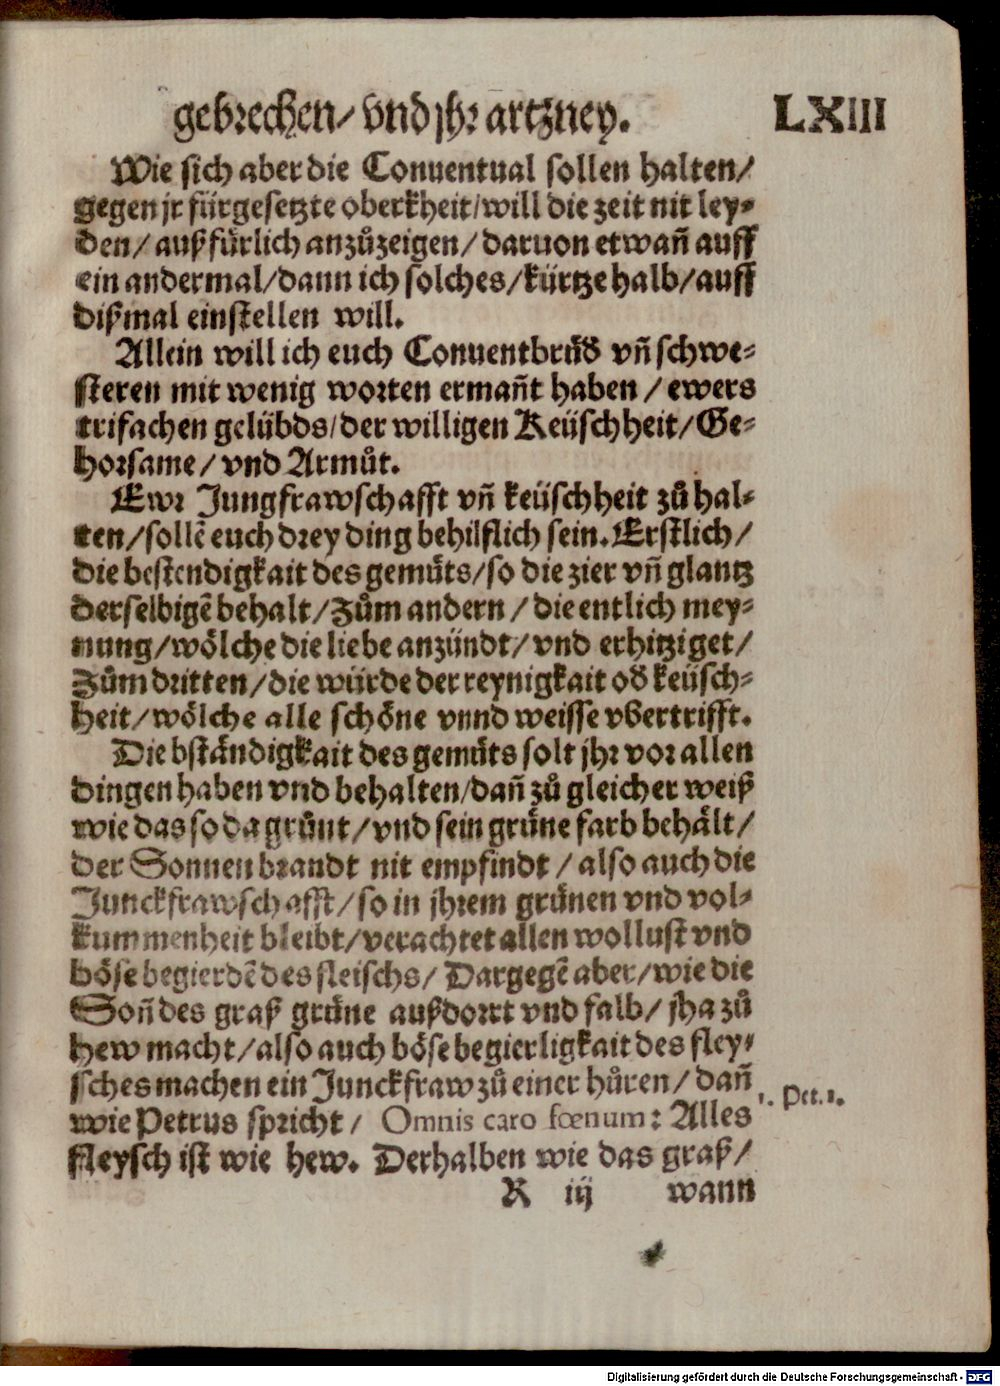 gebrechen/ vnd jhr artzney. LXIII
Wie sich aber die Conuentual sollen halten/
gegen jr fürgesetzte oberkheit/will die zeit nit ley⸗
den/ außfürlich anzůzeigen/ daruon etwañ auff
ein andermal/dann ich solches/kürtze halb/auff
dißmal einstellen will.
Allein will ich euch Conuentbrůd vñ schwe⸗
steren mit wenig worten ermañt haben / ewers
trifachen gelübds/der willigen Keüschheit/Ge⸗
horsame/ vnd Armůt.
Ewr Jungfrawschafft vñ keüschheit zů hal⸗
ten/sollẽ euch drey ding behilflich sein. Erstlich/
die bestendigkait des gemüts/so die zier vñ glantz
derselbigẽ behalt/Zům andern / die entlich mey⸗
nung/wölche die liebe anzündt/ vnd erhitziget/
Zům dritten/die würde der reynigkait od keüsch⸗
heit/wölche alle schöne vnnd weisse vbertrifft.
Die bständigkait des gemüts solt jhr vor allen
dingen haben vnd behalten/dañ zů gleicher weiß
wie das so da grůnt/vnd sein grüne farb behält/
der Sonnen brandt nit empfindt / also auch die
Junckfrawschafft/so in jhrem grünen vnd vol⸗
kummenheit bleibt/verachtet allen wollust vnd
böse begierdẽ des fleischs/ Dargegẽ aber/wie die
Soñ des graß grüne außdorrt vnd falb/ jha zů
hew macht/also auch böse begierligkait des fley⸗
sches machen ein Junckfraw zů einer hůren/ dañ
wie Petrus spricht/ Omnis caro fœnum: Alles
1. Pet. 1.
fleysch ist wie hew. Derhalben wie das graß/
K iij wann
Digitalisierung gefördert durch die Deutsche Forschungsgemeinschaft - DFG